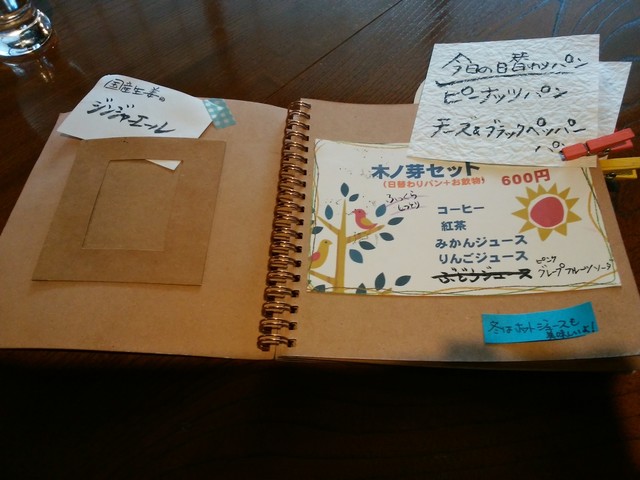 国産生姜の
ジンジャエール
今日の日替わりパン
ピーナッツパン
チーズ&ブラックペッパー
パン
木ノ芽セット
(日替わりパン+お飲物)
600円
ふっくら
しっとり
コーヒー
紅茶
みかんジュース
りんごジュース
ぶどうジュース
ピンク
グレープフルーツジュース
冬はホットジュースも
美味しいよ!